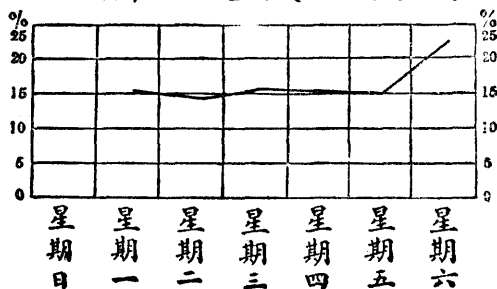 % %
25 25
20 20
15 15
10 10
5 5
0 0
星期日 星期一 星期二 星期三 星期四 星期五 星期六